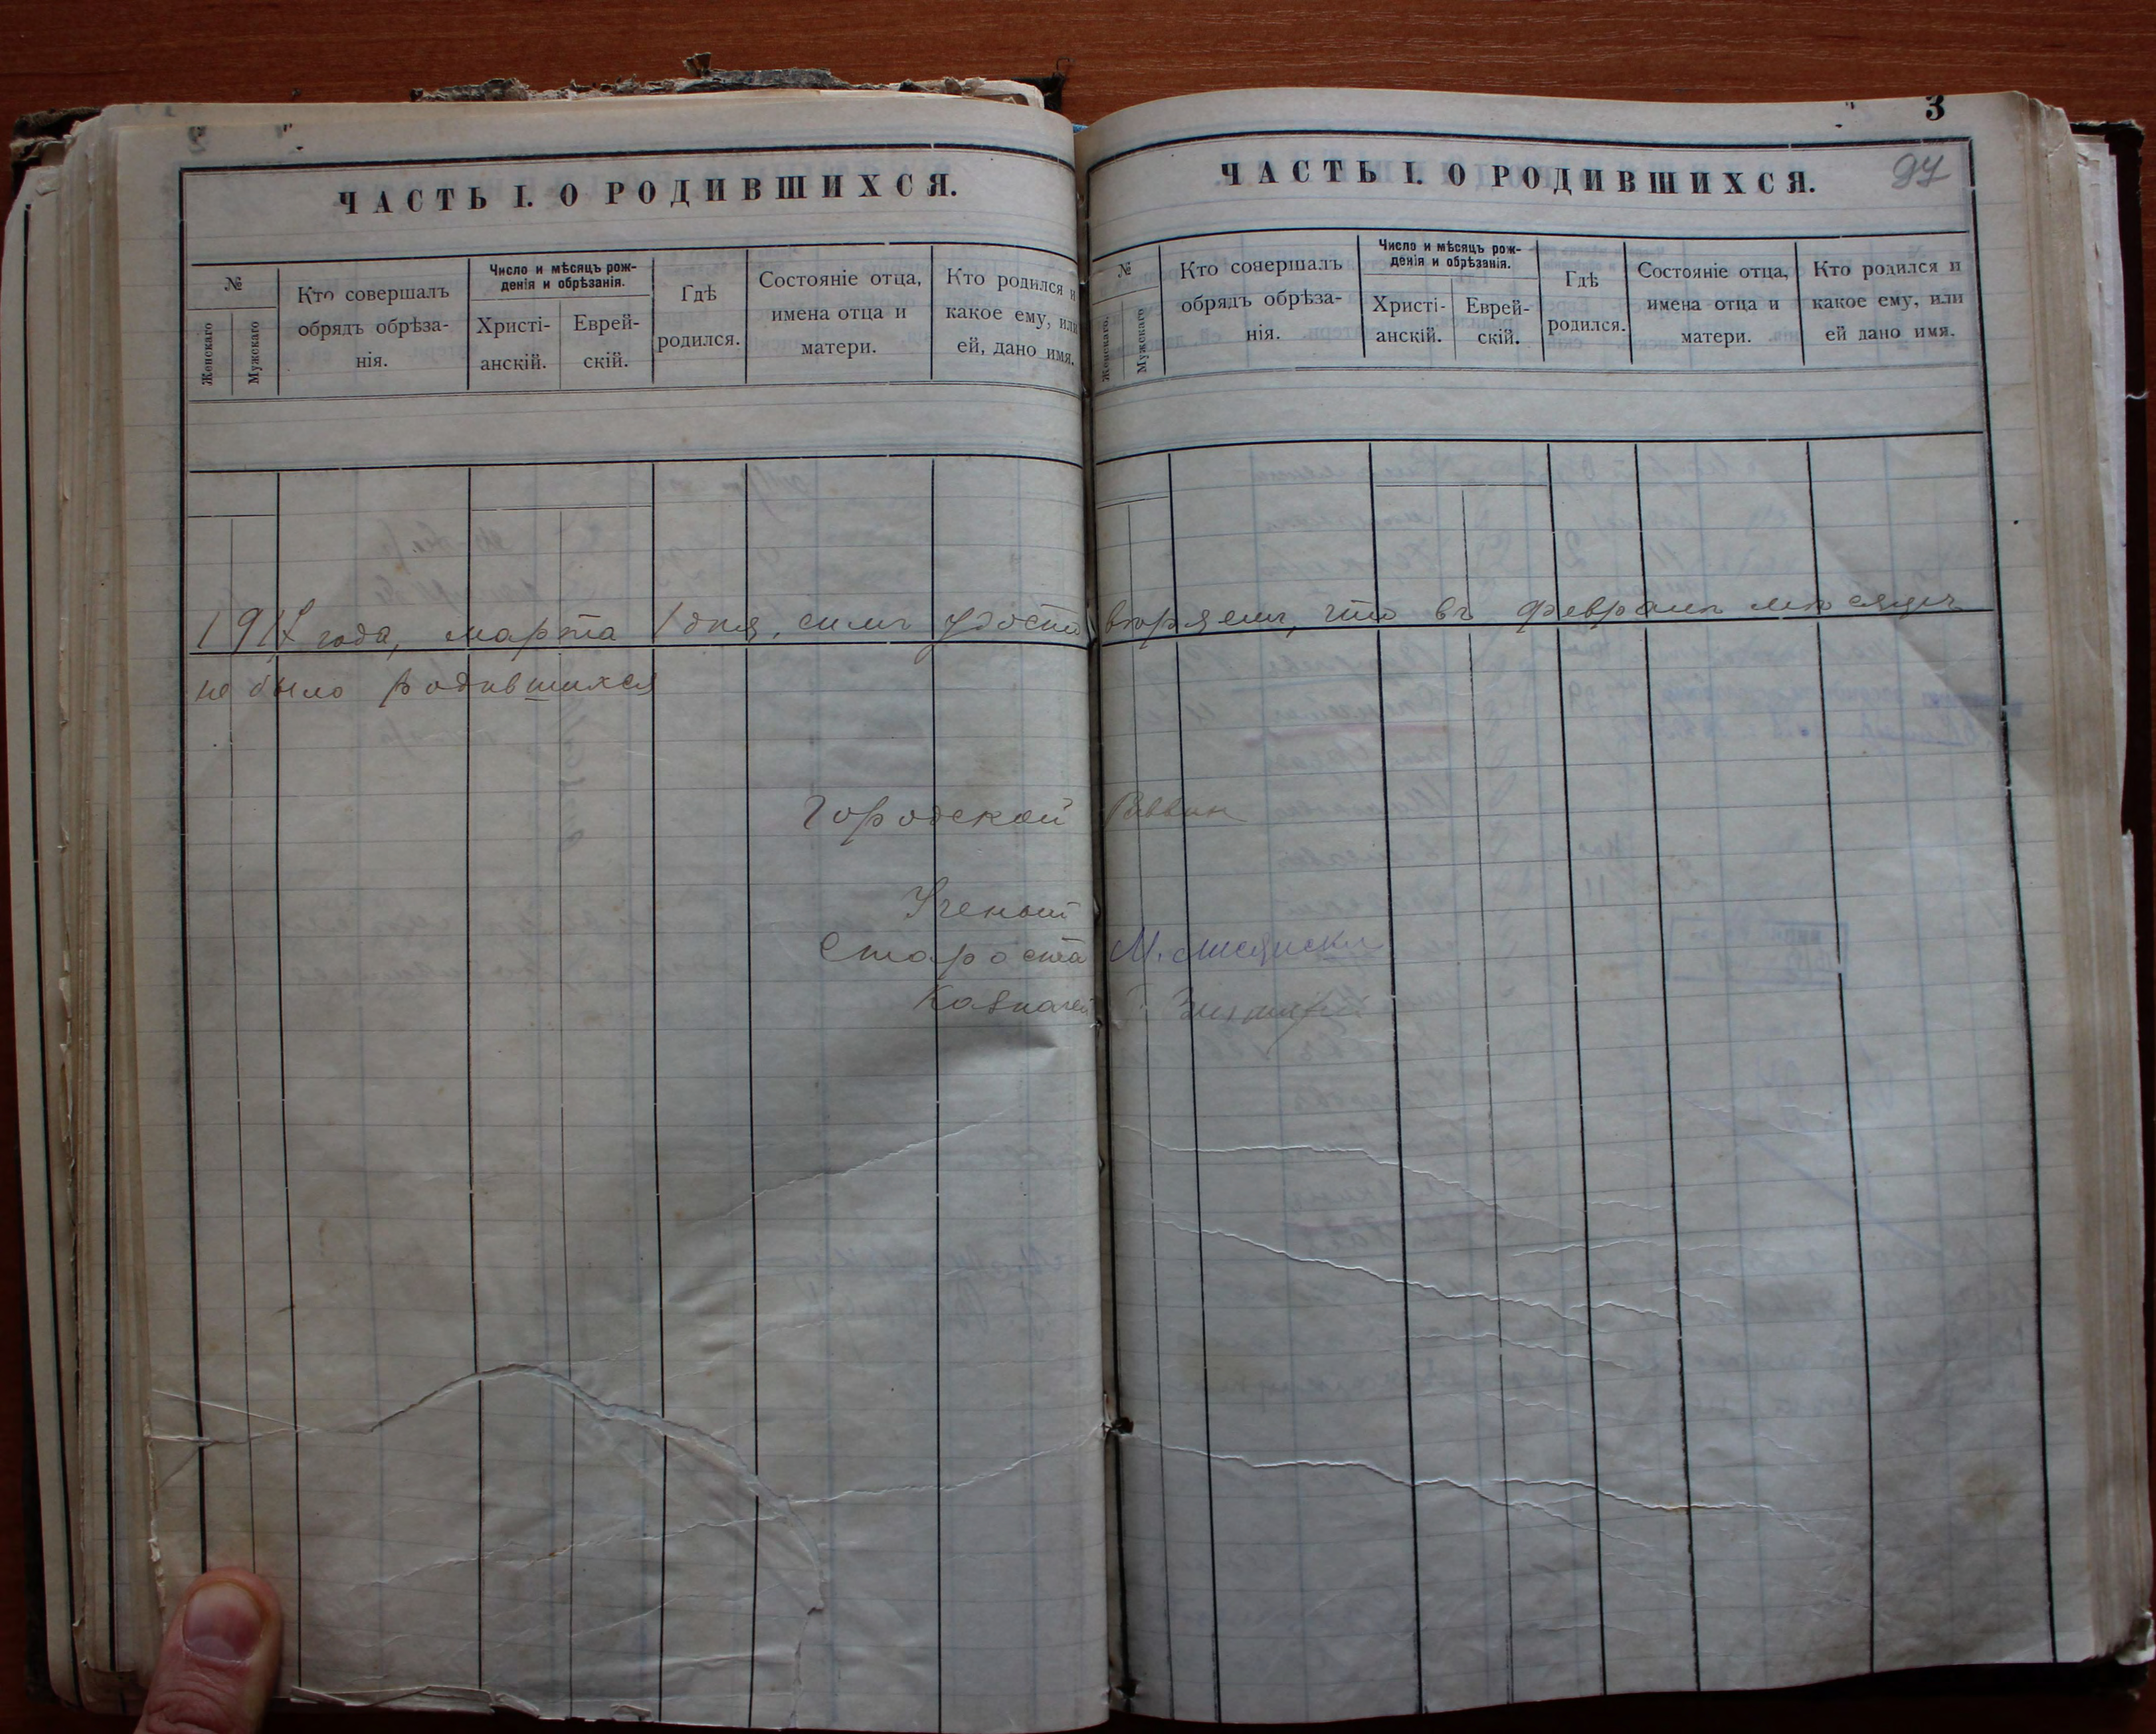 ЧАСТЬ I. О РОДИВШИХСЯ.
№
Женскаго
Мужскаго
Кто совершалъ
обрядъ обрѣза-
нія.
Число и мѣсяцъ рож-
денія и обрѣзанія.
Христі-
анскій.
Еврей-
скій.
Гдѣ
родился.
Состояніе отца,
имена отца и
матери.
Кто родился и
какое ему, или
ей, дано имя.
3
97
ЧАСТЬ I. О РОДИВШИХСЯ.
№
Женскаго.
Мужскаго
Кто совершалъ
обрядъ обрѣза-
нія.
Число и мѣсяцъ рож-
денія и обрѣзанія.
Христі-
анскій.
Еврей-
скій.
Гдѣ
родился.
Состояніе отца,
имена отца и
матери.
Кто родился и
какое ему, или
ей дано имя.
года, марта 1 дня, симъ удостовѣряемъ, что въ февралѣ мѣсяцѣ
не было родившихся
Городской Раввин
Ученый
Староста М.
Казначей